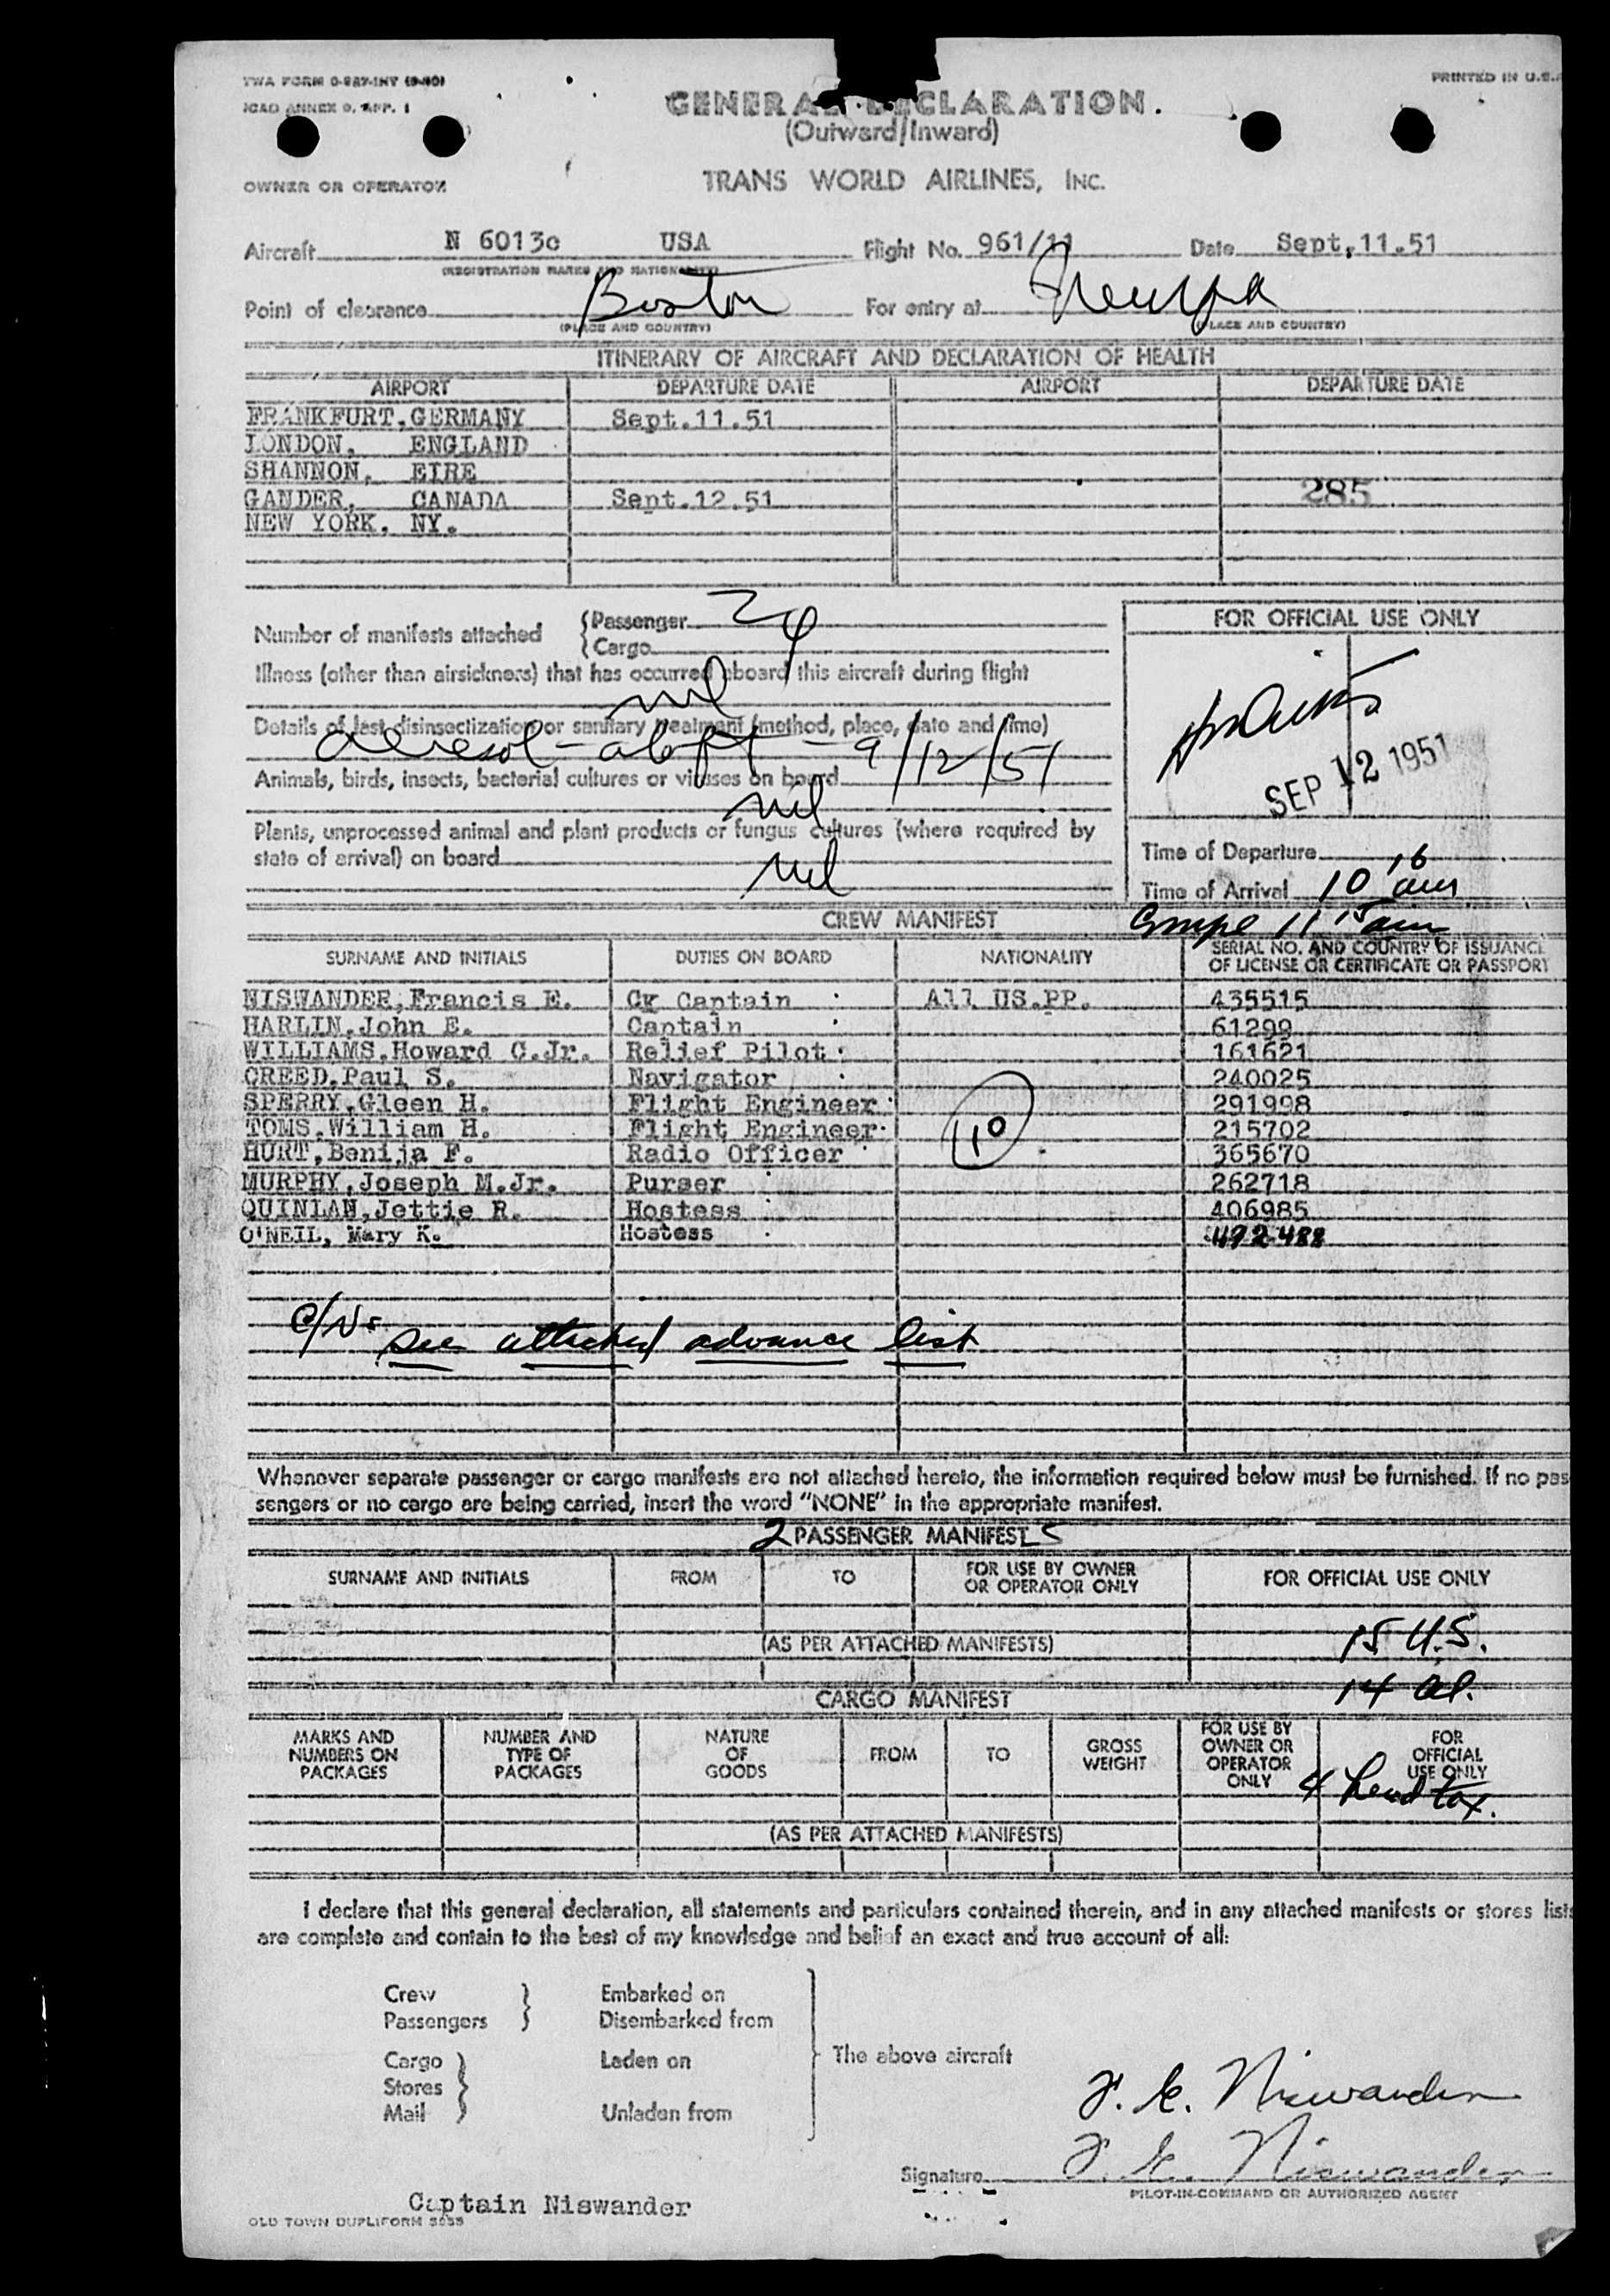 TWA FORM O-927-INT (9-50)
PRINTED IN U.S.A
ICAO ANNEX 9, APP. 1
GENERAL DECLARATION.
(Outward/Inward)
OWNER OR OPERATOR
TRANS WORLD AIRLINES, INC.
Aircraft N 6013c USA Flight No. 961/11 Date Sept.11.51
(REGISTRATION MARKS AND NATIONALITY)
Point of clearance Boston For entry at
(PLACE AND COUNTRY) (PLACE AND COUNTRY)
ITINERARY OF AIRCRAFT AND DECLARATION OF HEALTH
AIRPORT DEPARTURE DATE AIRPORT DEPARTURE DATE
FRANKFURT,GERMANY Sept.11.51
LONDON, ENGLAND
SHANNON, EIRE
GANDER, CANADA Sept.12.51 285
NEW YORK, NY.
FOR OFFICIAL USE ONLY
Number of manifests attached
Passenger 2
Cargo 4
Illness (other than airsickness) that has occurred aboard this aircraft during flight
nil
Details of last disinsectization or sanitary treatment (method, place, date and time)
aeresol - aloft - 9/12/51
Animals, birds, insects, bacterial cultures or viruses on board
nil
SEP 12 1951
Plants, unprocessed animal and plant products or fungus cultures (where required by
state of arrival) on board
nil
Time of Departure
Time of Arrival 10 16 am
CREW MANIFEST
11 15 am
SURNAME AND INITIALS DUTIES ON BOARD NATIONALITY SERIAL NO. AND COUNTRY OF ISSUANCE
OF LICENSE OR CERTIFICATE OR PASSPORT
NISWANDER,Francis E. Ck Captain All US.PP. 435515
HARLIN,John E. Captain 61299
WILLIAMS,Howard C.Jr. Relief Pilot 161621
CREED,Paul S. Navigator 240025
SPERRY,Gleen H. Flight Engineer 291998
TOMS,William H. Flight Engineer 215702
HURT,Benija F. Radio Officer 365670
MURPHY,Joseph M.Jr. Purser 262718
QUINLAN,Jettie R. Hostess 406985
O'NEIL, Mary K. Hostess 492488
10
C/Ns see attached advance list
Whenever separate passenger or cargo manifests are not attached hereto, the information required below must be furnished. If no pas
sengers or no cargo are being carried, insert the word "NONE" in the appropriate manifest.
2 PASSENGER MANIFESTS
SURNAME AND INITIALS FROM TO FOR USE BY OWNER
OR OPERATOR ONLY FOR OFFICIAL USE ONLY
(AS PER ATTACHED MANIFESTS) 15 U.S.
14 al.
CARGO MANIFEST
MARKS AND
NUMBERS ON
PACKAGES
NUMBER AND
TYPE OF
PACKAGES
NATURE
OF
GOODS
FROM
TO
GROSS
WEIGHT
FOR USE BY
OWNER OR
OPERATOR
ONLY
FOR
OFFICIAL
USE ONLY
4 head tax.
(AS PER ATTACHED MANIFESTS)
I declare that this general declaration, all statements and particulars contained therein, and in any attached manifests or stores lists
are complete and contain to the best of my knowledge and belief an exact and true account of all:
Crew Embarked on
Passengers Disembarked from
Cargo Laden on The above aircraft
Stores
Mail Unladen from
F. E. Niswander
Signature F. E. Niswander
PILOT-IN-COMMAND OR AUTHORIZED AGENT
Captain Niswander
OLD TOWN DUPLIFORM 5055